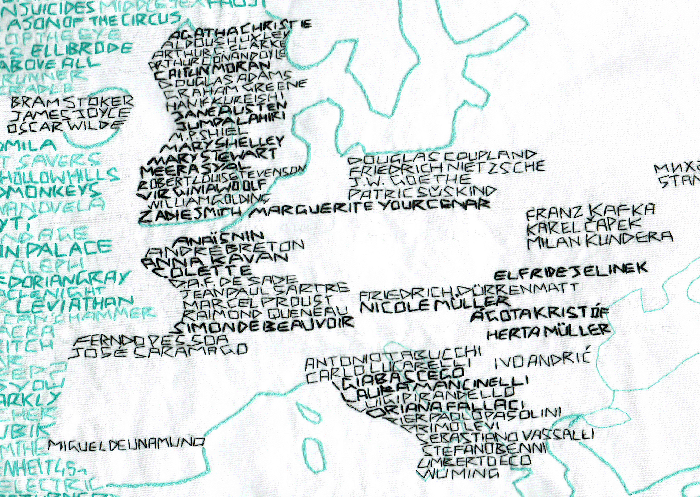 NJUICIDES MIDDLESEX FAUST
ASON OF THE CIRCUS
OF THE EYE
ELLIBRODE
ABOVE ALL
RUNNER
CRADLE
AGATHA CHRISTIE
ALDOUS HUXLEY
ARTHUR C CLARKE
ARTHUR CONAN DOYLE
CAITLIN MORAN
DOUGLAS ADAMS
GRAHAM GREENE
HANIF KUREISHI
JANE AUSTEN
JUMPA LAHIRI
M.P. SHIEL
MARY SHELLEY
MARY STEWART
MEERA SYAL
ROBERT LOUIS STEVENSON
VIRGINIA WOOLF
WILLIAM GOLDING
ZADIE SMITH MARGUERITE YOURCENAR
BRAM STOKER
JAMES JOYCE
OSCAR WILDE
DMILA
T SAVERS
HOLLOW HILLS
DMONKEYS
VANDVELA
YTÍ
IN PALACE
ALEPH
DORIAN GRAY
LEVIATHAN
HAMMER
DOUGLAS COUPLAND
FRIEDRICH NIETZSCHE
J.W. GOETHE
PATRICK SÜSKIND
МИХ
STAN
FRANZ KAFKA
KAREL ČAPEK
MILAN KUNDERA
ANAÏS NIN
ANDRE BRETON
ANNA KAVAN
COLETTE
D.A.F. DE SADE
JEAN PAUL SARTRE
MARCEL PROUST
RAIMOND QUENEAU
SIMON DE BEAUVOIR
ELFRIDE JELINEK
FRIEDRICH DÜRRENMATT
NICOLE MÜLLER
ÁGOTA KRISTÓF
HERTA MÜLLER
FERNDO PESSOA
JOSE CARAMAGO
ANTONIO TABUCCHI
IVO ANDRIĆ
CARLO LUCARELLI
GIABA SCEGO
LAURA MANCINELLI
LUIGI PIRANDELLO
ORIANA FALLACI
PIER PAOLO PASOLINI
PRIMO LEVI
SEBASTIANO VASSALLI
STEFANO BENNI
UMBERTO ECO
WU MING
MIGUEL DE UNAMUNO
ARKLY
UBIK
ELECTRIC